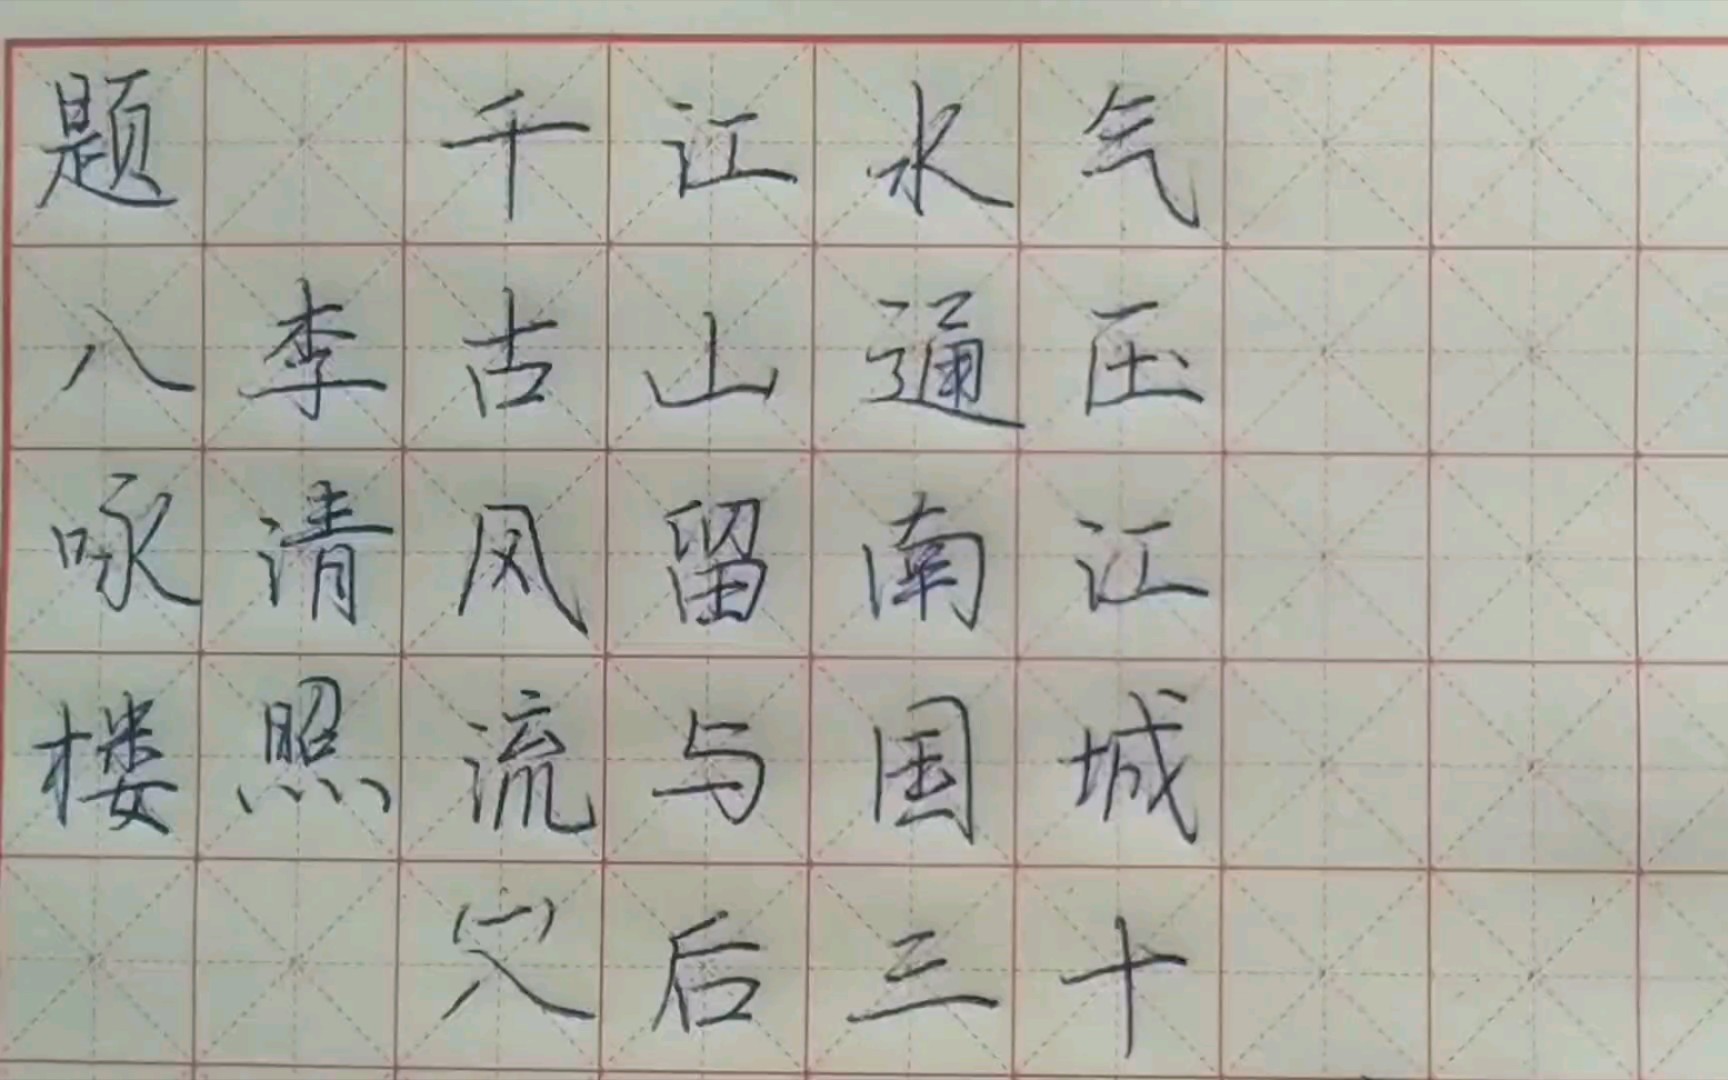 题八咏楼
李清照
千古风流穴
江山留与后
水通南国三
气压江城十